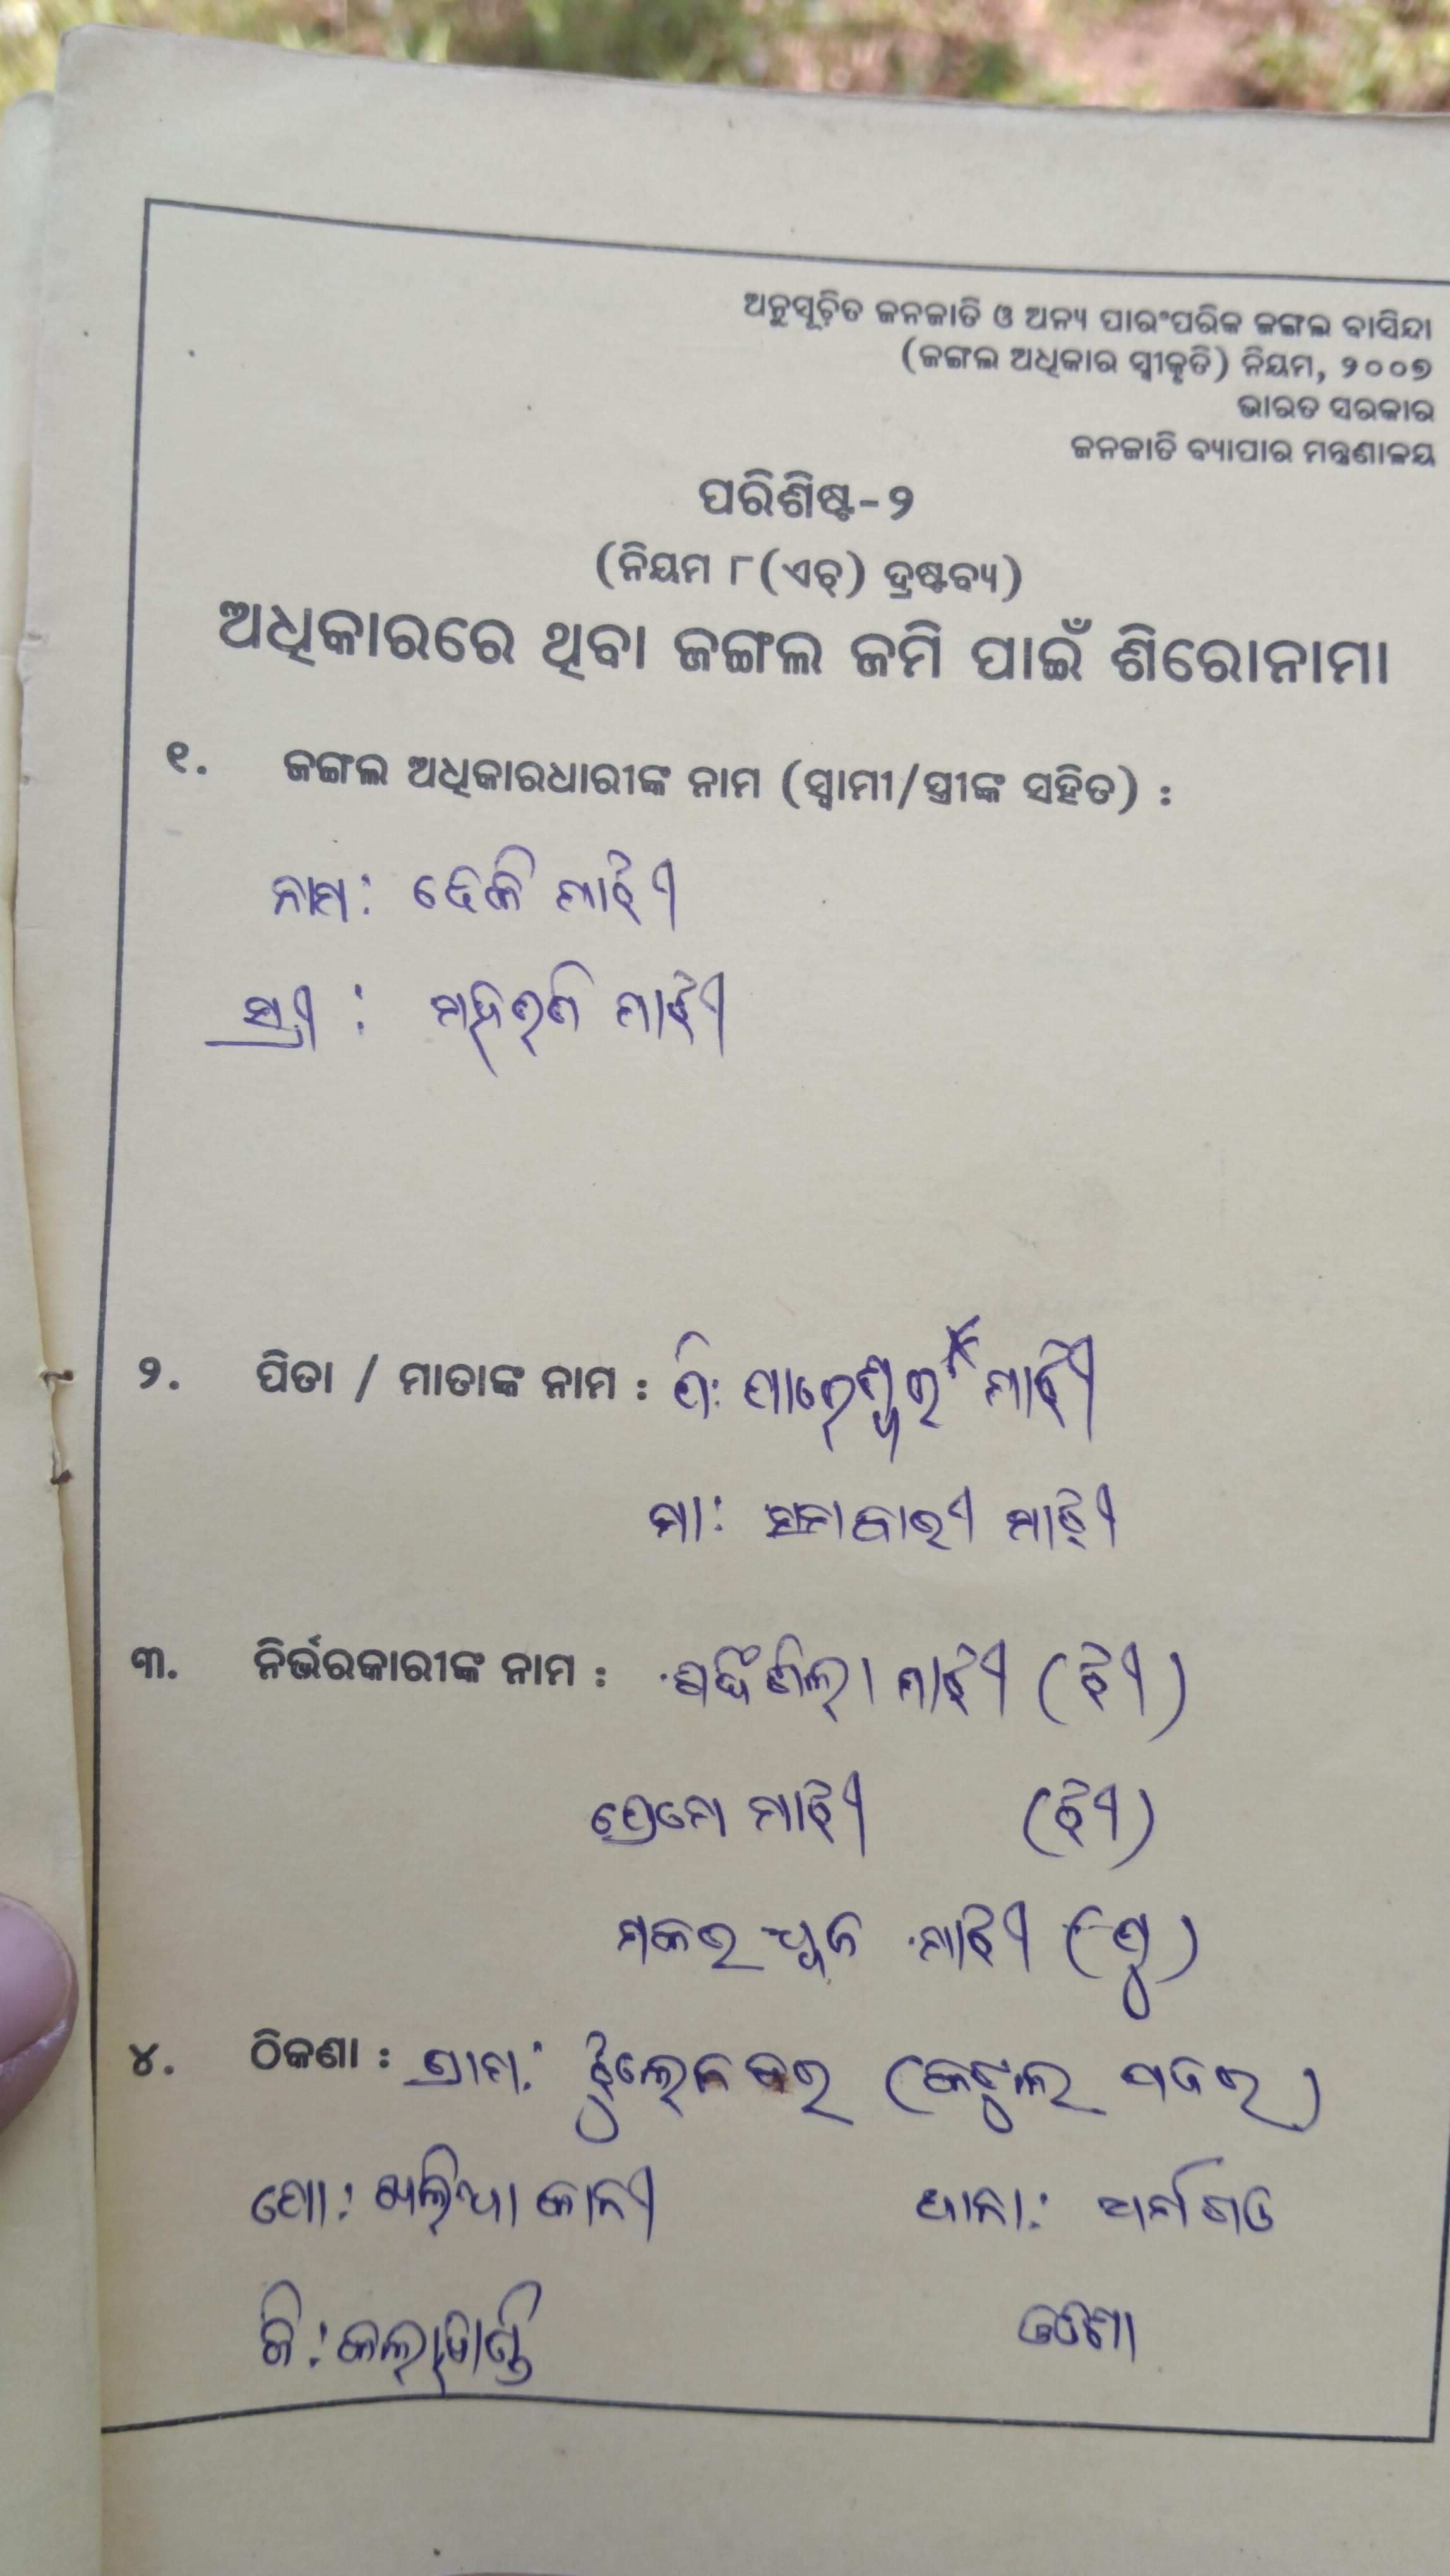 ଅନୁସୂଚିତ ଜନଜାତି ଓ ଅନ୍ୟ ପାରଂପରିକ ଜଙ୍ଗଲ ବାସିନ୍ଦା
(ଜଙ୍ଗଲ ଅଧିକାର ସ୍ୱୀକୃତି) ନିୟମ, ୨୦୦୭
ଭାରତ ସରକାର
ଜନଜାତି ବ୍ୟାପାର ମନ୍ତ୍ରଣାଳୟ
ପରିଶିଷ୍ଟ-୨
(ନିୟମ ୮(ଏଚ୍) ଦ୍ରଷ୍ଟବ୍ୟ)
ଅଧିକାରରେ ଥିବା ଜଙ୍ଗଲ ଜମି ପାଇଁ ଶିରୋନାମା
୧. ଜଙ୍ଗଲ ଅଧିକାରଧାରୀଙ୍କ ନାମ (ସ୍ୱାମୀ/ସ୍ତ୍ରୀଙ୍କ ସହିତ) :
ନାମ: ମାଝୀ
ସ୍ତ୍ରୀ : ମାଝୀ
୨. ପିତା / ମାତାଙ୍କ ନାମ : ପି: ମାଝୀ
ମା: ମାଝୀ
୩. ନିର୍ଭରକାରୀଙ୍କ ନାମ : ମାଝୀ (ଝୀ)
ପ୍ରେମେ ମାଝୀ (ଝୀ)
ମକରଧ୍ୱଜ ମାଝୀ (ପୁ)
୪. ଠିକଣା : ଗ୍ରାମ:
ପୋ: ଥାନା: ଧର୍ମଗଡ
ଜି: କଲାହାଣ୍ଡି ଓଡିଶା